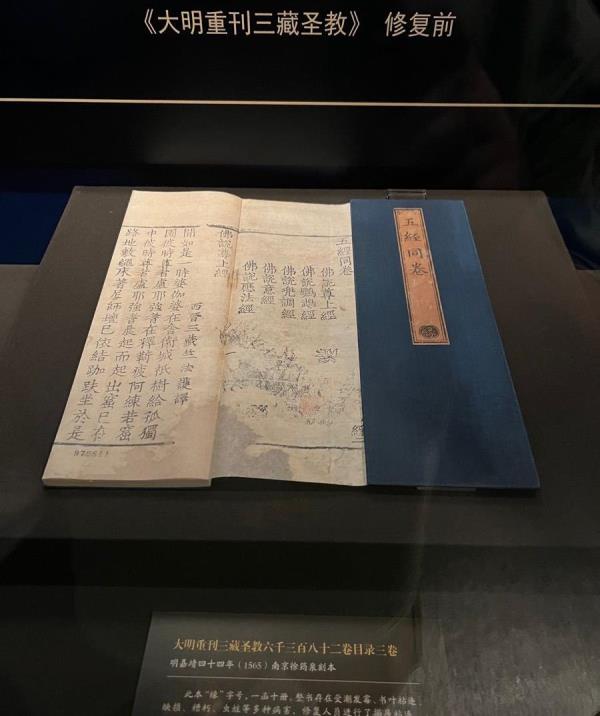 《大明重刊三藏圣教》 修复前
五經同卷
五經同卷
佛說尊上經
佛說鸚鵡經
佛說兜調經
佛說意經
佛說應法經
經
佛說尊上經
西晉三藏竺法護譯
聞如是一時婆伽婆在舍衛城祇樹給孤獨
園彼時尊者盧耶強耆在釋羇瘦阿練若窟
中彼時尊者盧耶強耆晨起而起出窟已在
路地敷繩床著尼師壇已依結跏趺坐於是
大明重刊三藏圣教六千三百八十二卷目录三卷
明嘉靖四十四年（1565）南京徐筠泉刻本
此本“缘”字号，一函十册，整书存在受潮发霉、书叶粘连、
缺损、糟朽、虫蛀等多种病害，修复人员进行了揭